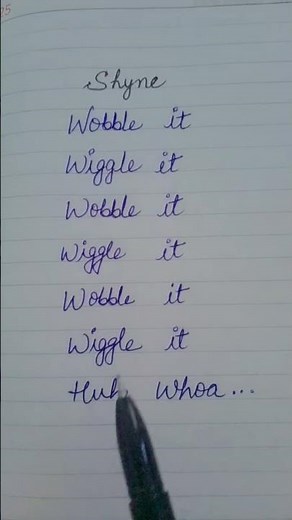 Shyne
Wobble it
Wiggle it
Wobble it
Wiggle it
Wobble it
Wiggle it
Huh Whoa...